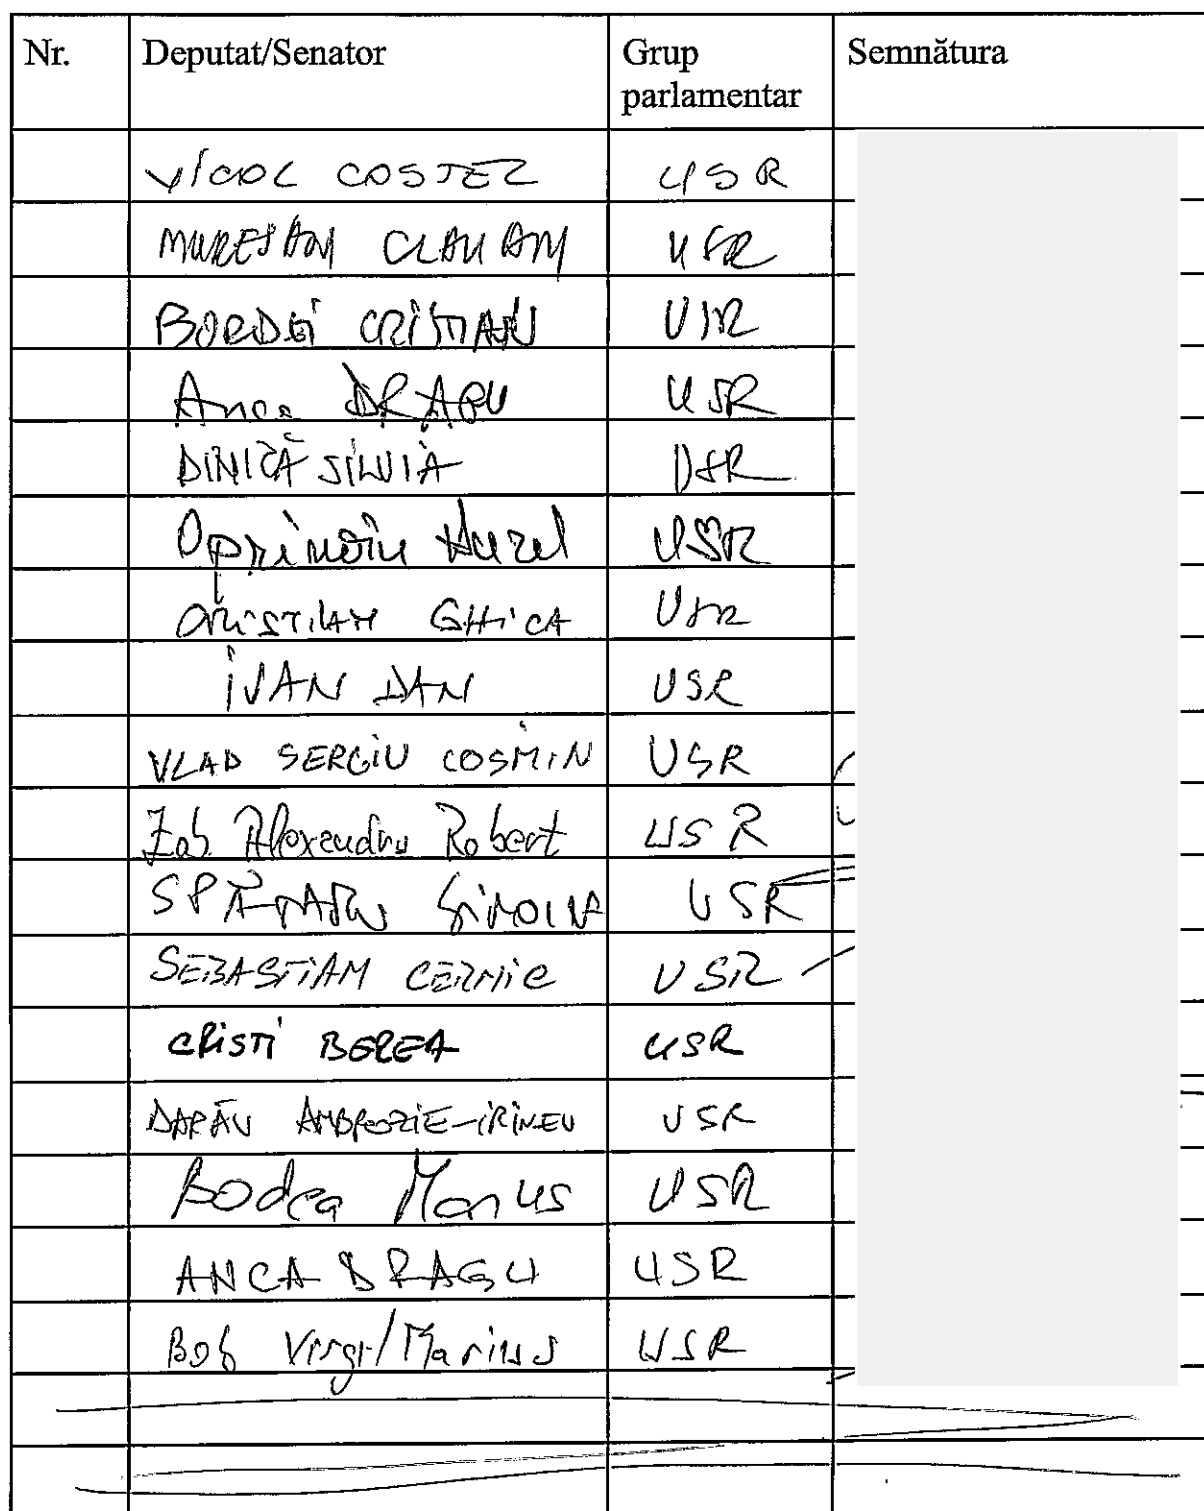 Nr. Deputat/Senator Grup parlamentar Semnătura
VICOL COSTEL USR
MUREȘAN CLAUDIU USR
BORDEI CRISTIAN USR
Anca DRAGU USR
DINICĂ SILVIA USR
Oprinoiu Aurel USR
CRISTIAN GHICA USR
IVAN DAN USR
VLAD SERGIU COSMIN USR
Zob Alexandru Robert USR
SPĂTARU SIMONA USR
SEBASTIAN CERNIC USR
CRISTI BEREA USR
DARĂU AMBROZIE-IRINEU USR
Bodea Marius USR
ANCA DRAGU USR
Bob Virgil Marius USR